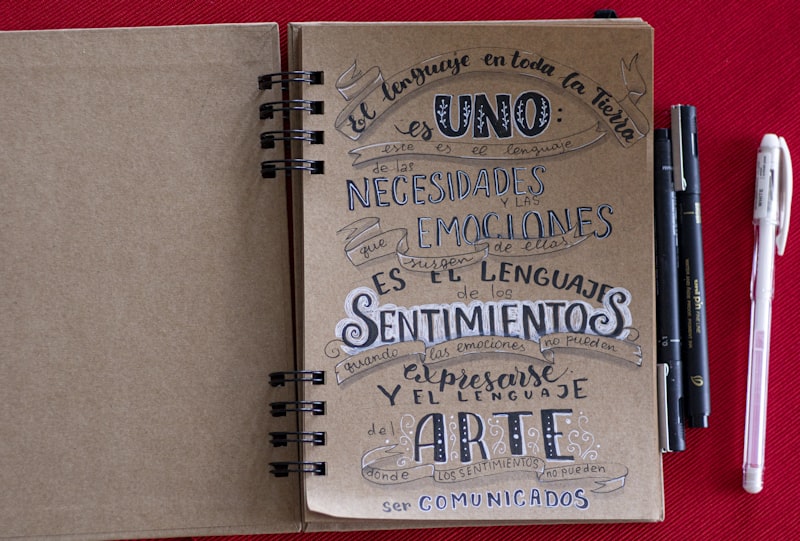 El lenguaje en toda la Tierra
es UNO:
este es el lenguaje
de las
NECESIDADES
Y LAS
EMOCIONES
que surgen de ellas
ES EL LENGUAJE
de los
SENTIMIENTOS
quando las emociones no pueden
expresarse
Y EL LENGUAJE
del ARTE
donde LOS SENTIMIENTOS no pueden
ser COMUNICADOS
uni pin